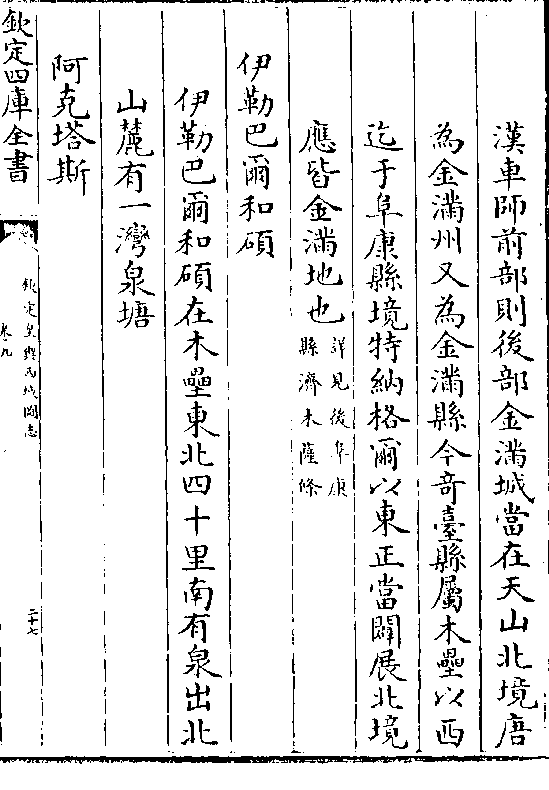 漢車師前部則後部金滿城當在天山北境唐
為金滿州又為金滿縣今奇臺縣屬木壘以西
迄于阜康縣境特納格爾以東正當闢展北境
應皆金滿地也詳見後阜康
縣濟木薩條
伊勒巴爾和碩
伊勒巴爾和碩在木壘東北四十里南有泉出北
山麓有一灣泉塘
阿克塔斯
欽定四庫全書
欽定皇輿西域圖志
卷九
二十七